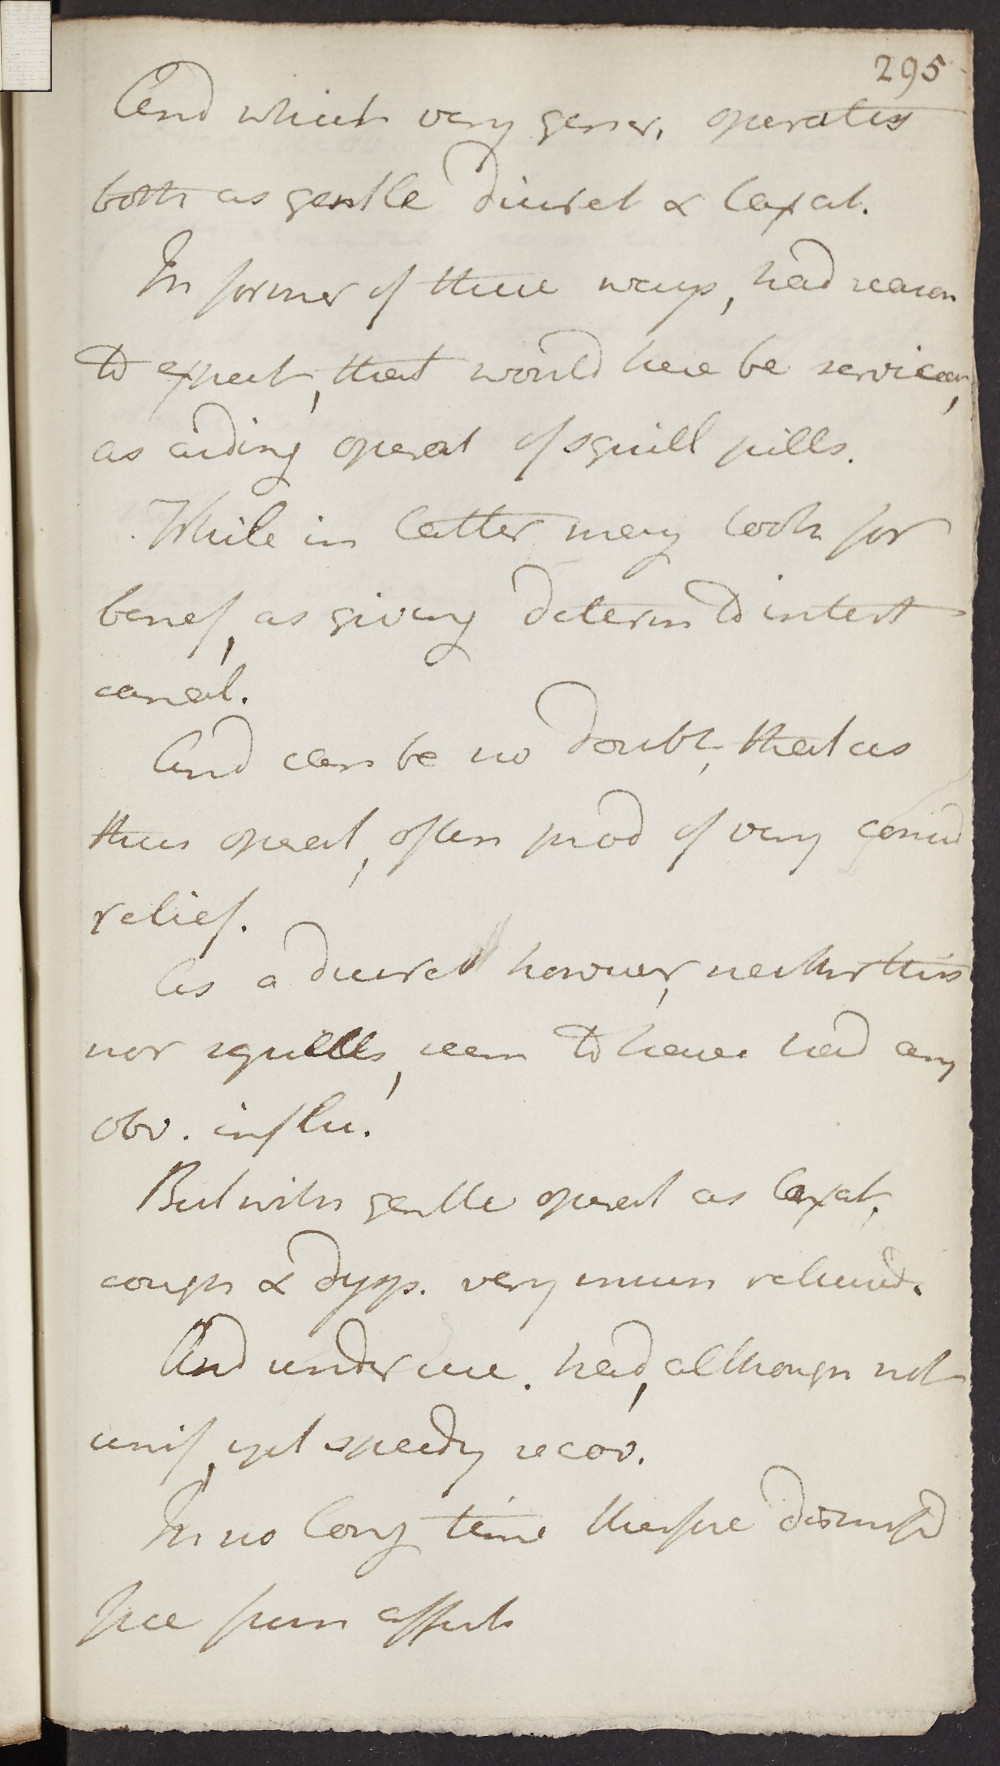 295
And which very gener. operates
both as gentle diuret & laxat.
In former of these ways, had reason
to expect, that would here be serviceas,
as aiding operat of squill pills.
While in latter may look for
benef, as giving determ to intest
canal.
And can be no doubt, that as
thus operat, often prod of very consid
relief.
As a diuret however, neither this
nor squills, seem to have had any
obv. influ.
But with gentle operat as laxat,
cough & dysp. very much relieved.
And under use. had, although not
unif, yet speedy recov.
In no long time therefore dismissd
free from affect